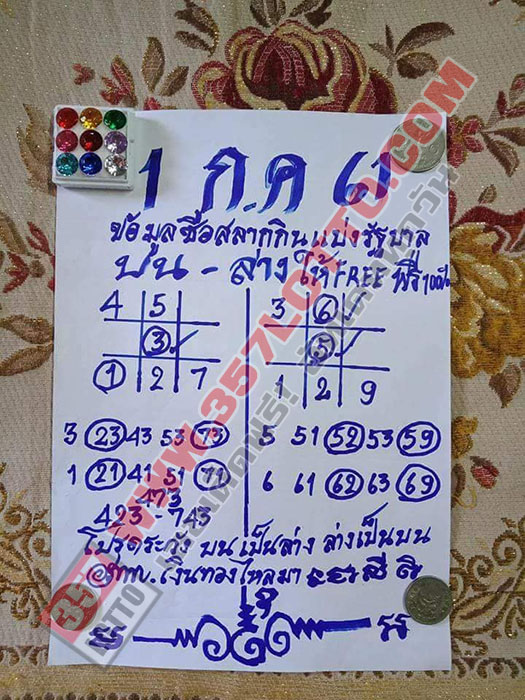 1 ก.ค 61
ข้อมูลซื้อสลากกินแบ่งรัฐบาล
บน - ล่าง ให้ FREE ฟรี
4 5
3
1 2 7
3 6
1 2 9
3 23 43 53 73
1 21 41 51 71
473
423 743
5 51 52 53 59
6 61 62 63 69
โปรดระวัง บนเป็นล่าง ล่างเป็นบน
เงินทองไหลมา
WWW.357LOTTO.COM
357
LOTTO